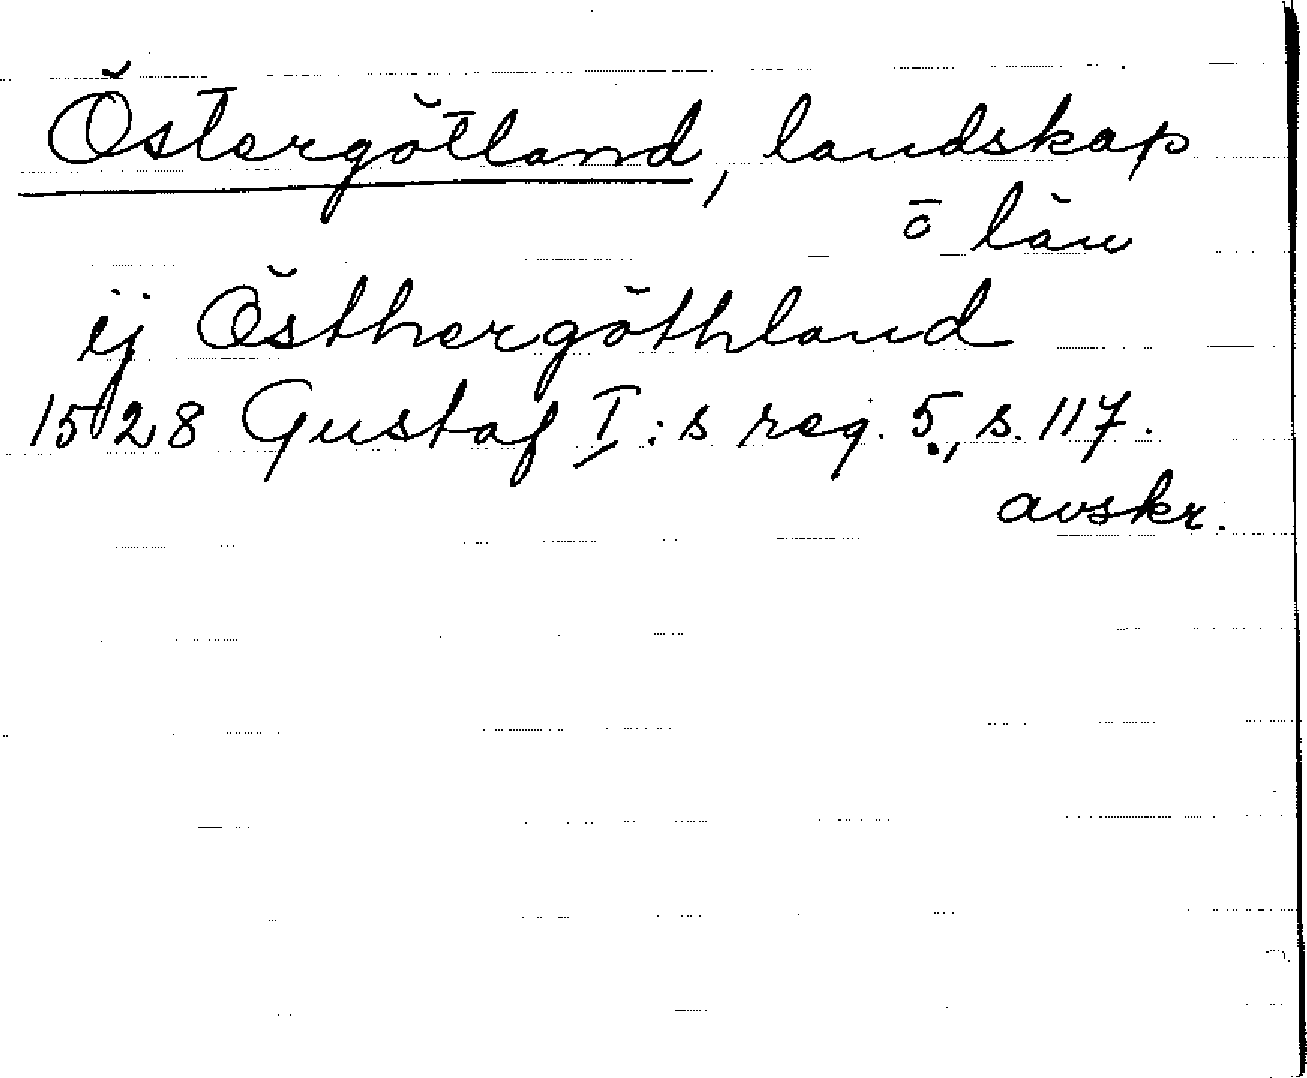 Östergötland, landskap
o län
ij Östhergöthland
1528 Gustaf I:s reg. 5., s. 117.
avskr.